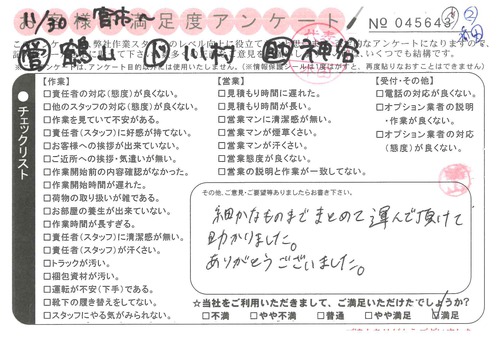 11/30
お客様満足度アンケート
№ 045643
鶴山 川村 神谷
チェックリスト
【作業】
□責任者の対応(態度)が良くない。
□他のスタッフの対応(態度)が良くない。
□作業を見ていて不安がある。
□責任者(スタッフ)に好感が持てない。
□お客様への挨拶が出来ていない。
□ご近所への挨拶・気遣いが無い。
□作業開始前の内容確認がなかった。
□作業開始時間が遅れた。
□荷物の取り扱いが雑である。
□お部屋の養生が出来ていない。
□作業時間が長すぎる。
□責任者(スタッフ)に清潔感が無い。
□責任者(スタッフ)が汗くさい。
□トラックが汚い。
□梱包資材が汚い。
□運転が不安(下手)である。
□靴下の履き替えをしてない。
□スタッフにやる気がみられない。
【営業】
□見積もり時間に遅れた。
□見積もり時間が長い。
□営業マンに清潔感が無い。
□営業マンが煙草くさい。
□営業マンが汗くさい。
□営業態度が良くない。
□営業の説明と作業が一致してない。
【受付・その他】
□電話の対応が良くない。
□オプション業者の説明・作業が良くない。
□オプション業者の対応(態度)が良くない。
その他、ご意見・ご要望等ありましたらお書き下さい。
細かなものまでまとめて運んで頂けて
助かりました。
ありがとうございました。
☆当社をご利用いただきまして、ご満足いただけたでしょうか?
□不満 □やや不満 □普通 □やや満足 □満足